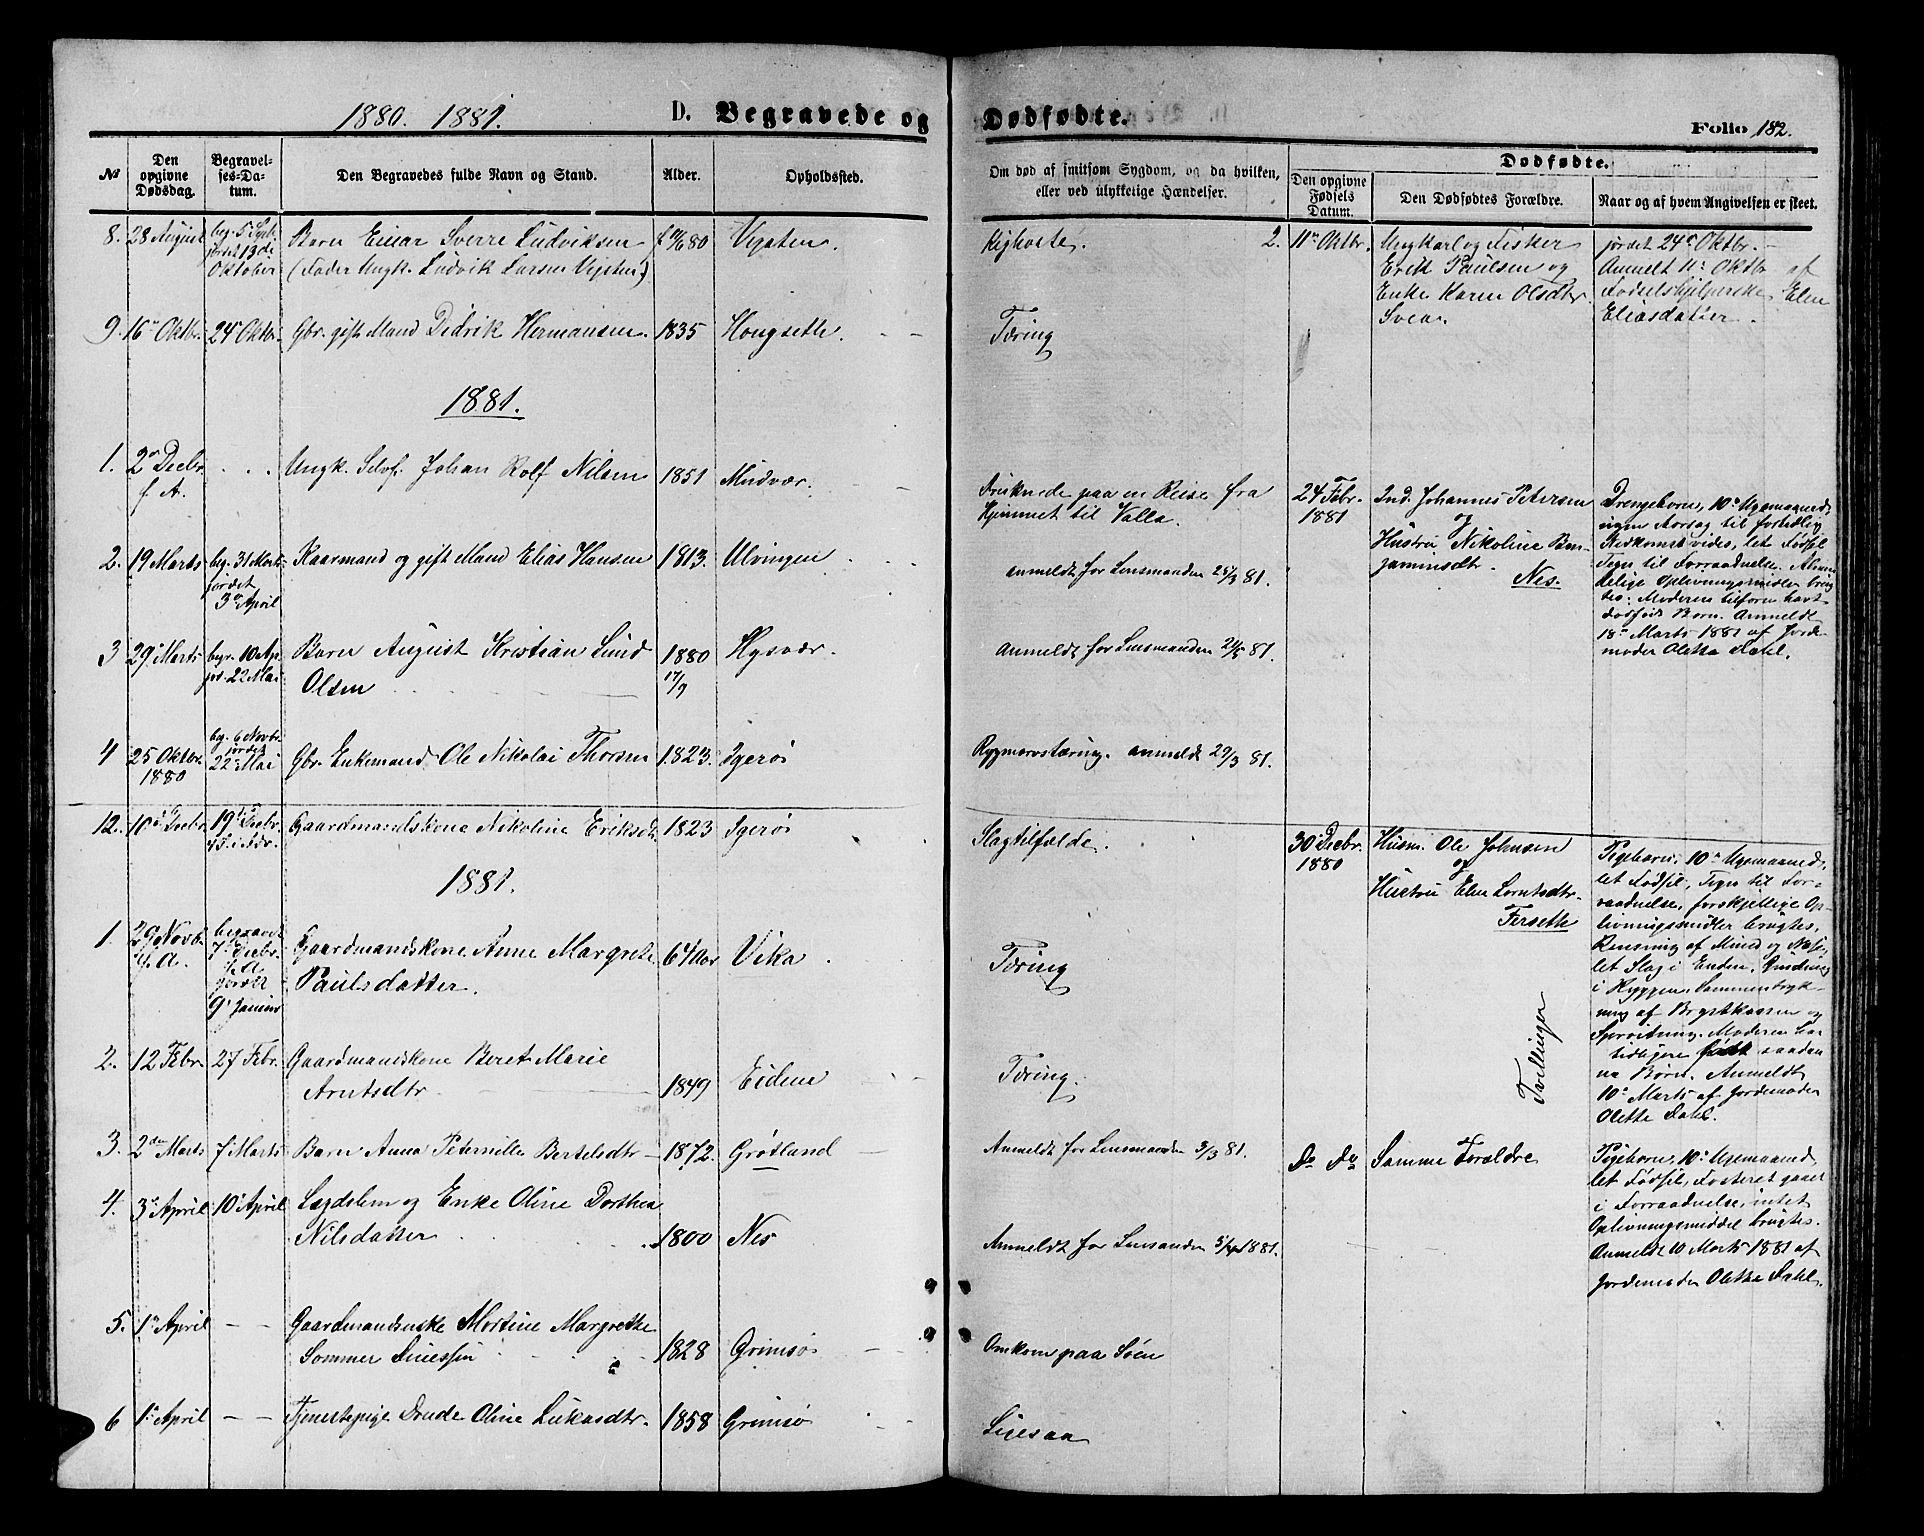 1880. 1881.
D. Begravede og
Dødfødte.
Folio 182.
№
Den opgivne Dødsdag.
Begravelses-Datum.
Den Begravedes fulde Navn og Stand.
Alder.
Opholdssted.
Om død af smitsom Sygdom, og da hvilken,
eller ved ulykkelige Hændelser.
Dødfødte.
Den opgivne Fødsels Datum.
Den Dødfødtes Forældre.
Naar og af hvem Angivelsen er skeet.
8. 28 August beg. 5 Septb. jordet 13de Oktober Barn Einar Sverre Ludviksen f. 80 Vigsten.
(Fader Ungk. Ludvik Larsen Vigsten)
Kighoste.
2. 11te Oktbr. Ungkarl og Fisker
Erik Paulsen og
Enke Karen Olsdtr.
jordet 24de Oktbr.
Anmeldt 11te Oktbr af
Fødselshjelperske Elen
Eliasdatter.
9. 16de Oktbr. 24de Oktbr. Gbr. gift Mand Didrik Hermansen. 1835 Hongsette.
Tæring
1881.
1. 2den Decbr. f. A. Ungk. Selvf. Johan Rolf Nilsen 1851 Mudvær.
Druknede paa en Reise fra
Hjemmet til Valla.
24 Febr. 1881
Ind. Johannes Petersen
og
Hustru Nikoline Ben-
jaminsdt.
Nes.
Drengebarn, 10de Ugemaaned,
ingen Aarsag til fortidlig
Nedkomst vides, let Fødsel
Tegn til Forraadnelse. Almin-
delige Oplivningsmidler brug-
tes. Moderen tilforn havt
dødfødt Børn. Anmeldt
18de Marts 1881 af Jorde-
moder Oletta Dahl.
2. 19 Marts beg. 31 Marts jordet 3de April Kaarmand og gift Mand Elias Hansen 1813. Ulvingen
anmeldt for Lensmanden 81.
3 29de Marts begr. 10 Ap. jor. 22 Mai Barn August Kristian Lund
Olsen 1880 17/9 Hysvær.
Anmeldt for Lensmanden 2/5 81.
4 25 Oktbr. 1880 beg. 6 Novbr. jordet 22de Mai Gbr. Enkemand Ole Nikolai Thorsen 1823. Igerøi
Rygmarvstæring. anmeldt 29/3 81.
12. 10de Decbr. 19de Decbr. Gaardmandskone Nikoline Eriksdt. 1823 Igerøi
Slagtilfælde.
30 Decbr. 1880
Husm. Ole Johnsen
og
Hustru Elen Lorntsdtr.
Forsethe
Tvillinger
Pigebarn, 10de Ugemaaned,
let Fødsel, Tegn til For-
raadnelse, forskjellige Op-
livningsmidler brugtes,
Rensning af Mund og Næse,
let Slag i Enden, Gnidning
i Ryggen, Sammentryk-
ning af Brystkassen og
Moderen har
tidligere født saadan
ne Børn. Anmeldt
10de Marts af Jordemoder
Oletta Dahl.
1881.
1. 29 Novb. f. A. begravet 7de Decbr. f. A. jordet 9de Januar Gaardmandskone Anne Margrete
Paulsdatter. 64 Aar Vika
Tæring
2. 12 Febr. 27 Febr. Gaardmandskone Beret Marie
Arntsdtr 1849 Eidem
Tæring.
3. 2den Marts 7de Marts Barn Anna Peternille Bertelsdtr 1872. Grøtland
Anmeldt for Lensmanden 3/3 81.
Do Do Samme Forældre
Pigebarn, 10de Ugemaaned,
let Fødsel, Fosteret gaaet
i Forraadnelse, intet
Oplivningsmiddel brugtes.
Anmeldt 10 Marts 1881 af
Jordemoder Oletta Dahl.
4. 3de April 10de April Lægdslem og Enke Oline Dorthea
Nilsdatter 1800 Nes
Anmeldt for Lensmanden 5/4 1881.
5. 1te April Gaardmandsenke Martine Margrethe
Sommer 1828 Grimsø
Omkom paa Søen
6 1te April Tjenestepige Drude Oline Lukasdtr. 1858 Grimsø
Ligesaa